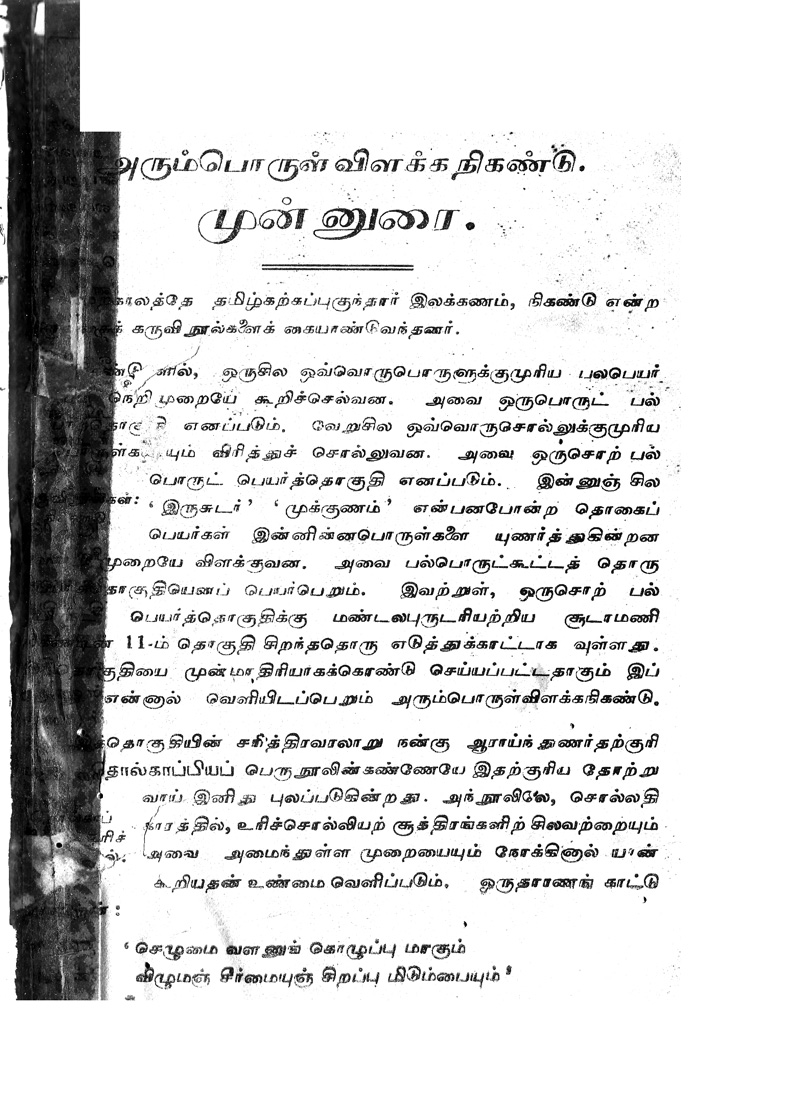 அரும்பொருள் விளக்க நிகண்டு.
முன்னுரை.
தமிழ்கற்கப்புகுந்தார் இலக்கணம், நிகண்டு என்ற
கருவிநூல்களைக் கையாண்டுவந்தனர்.
ஒருசில ஒவ்வொருபொருளுக்குமுரிய பலபெயர்
நெறிமுறையே கூறிச்செல்வன. அவை ஒருபொருட் பல்
எனப்படும். வேறுசில ஒவ்வொருசொல்லுக்குமுரிய
விரித்துச் சொல்லுவன. அவை ஒருசொற் பல்
பொருட் பெயர்த்தொகுதி எனப்படும். இன்னுஞ் சில
‘ இருசுடர் ’ ‘ முக்குணம் ’ என்பனபோன்ற தொகைப்
பெயர்கள் இன்னின்னபொருள்களை யுணர்த்துகின்றன
முறையே விளக்குவன. அவை பல்பொருட்கூட்டத் தொரு
பெயர்பெறும். இவற்றுள், ஒருசொற் பல்
பெயர்த்தொகுதிக்கு மண்டலபுருடரியற்றிய சூடாமணி
11-ம் தொகுதி சிறந்ததொரு எடுத்துக்காட்டாக வுள்ளது.
முன்மாதிரியாகக்கொண்டு செய்யப்பட்டதாகும் இப்
என்னால் வெளியிடப்பெறும் அரும்பொருள்விளக்கநிகண்டு.
சரித்திரவரலாறு நன்கு ஆராய்ந்துணர்தற்குரி
பெருநூலின்கண்ணேயே இதற்குரிய தோற்று
வாய் இனிது புலப்படுகின்றது. அந்நூலிலே, சொல்லதி
காரத்தில், உரிச்சொல்லியற் சூத்திரங்களிற் சிலவற்றையும்
அவை அமைந்துள்ள முறையையும் நோக்கினால் யான்
கூறியதன் உண்மை வெளிப்படும். ஒருதாரணங் காட்டு
‘ செழுமை வளனுங் கொழுப்பு மாகும்
விழுமஞ் சீர்மையுஞ் சிறப்பு மிடும்பையும் ’